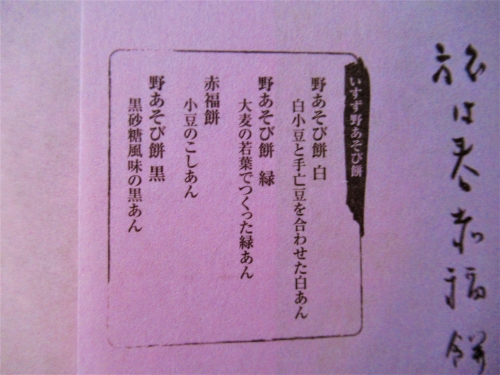 旅は春赤福餅
いすず野あそび餅
野あそび餅 白
白小豆と手亡豆を合わせた白あん
野あそび餅 緑
大麦の若葉でつくった緑あん
赤福餅
小豆のこしあん
野あそび餅 黒
黒砂糖風味の黒あん